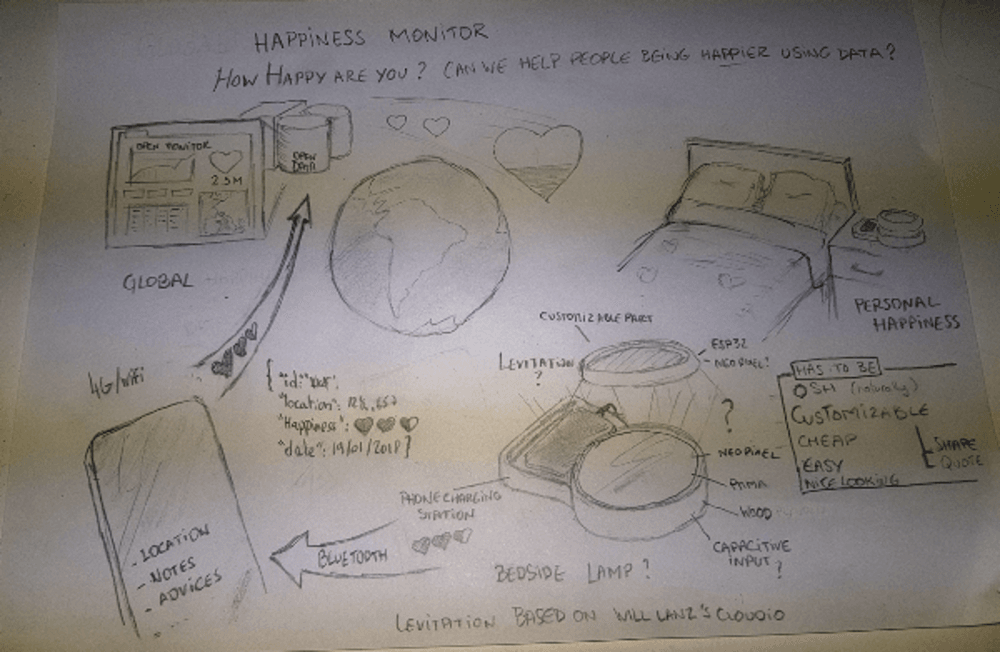 HAPPINESS MONITOR
HOW HAPPY ARE YOU? CAN WE HELP PEOPLE BEING HAPPIER USING DATA?
OPEN MONITOR
2.3M
OPEN
DATA
GLOBAL
PERSONAL
HAPPINESS
CUSTOMIZABLE PART
LEVITATION
?
ESP32
NEOPIXEL?
4G/WIFI
{ "id":
"location":
"Happiness":
"date": 19/01/2018 }
HAS TO BE
OSH (naturally)
CUSTOMIZABLE
CHEAP
EASY
NICE LOOKING
SHAPE
QUOTE
?
NEOPIXEL
PMMA
WOOD
CAPACITIVE
INPUT?
PHONE CHARGING
STATION
BLUETOOTH
- LOCATION
- NOTES
- ADVICES
BEDSIDE LAMP?
LEVITATION BASED ON WILL LANZ'S CLOUDIO